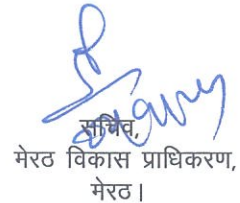 सचिव,
मेरठ विकास प्राधिकरण,
मेरठ।